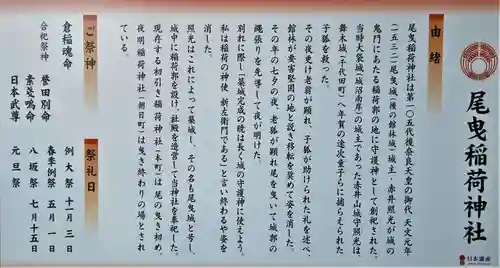 尾曳稲荷神社
日本遺産
由緒
尾曳稲荷神社は第一〇五代後奈良天皇の御代 天文元年
(一五三二)尾曳城(後の館林城)城主、赤井照光が城の
鬼門にあたる稲荷郭の地に守護神として創祀された。
当時大袋城(城沼南岸)の城主であった赤井山城守照光は、
舞木城(千代田町)へ年賀の途次童子らに捕らえられた
子狐を救った。
その夜更け老翁が顕れ、子狐が助けられた礼を述べ、
館林が要害堅固の地と説き移転を奨めて姿を消した。
その年の七夕の夜、老狐が顕れ尾を曳いて城郭の
縄張りを先導して夜が明けた。
別れに際し「築城完成の暁は長く城の守護神に使えよう。
私は稲荷の神使 新左衛門である」と言い終わるや姿を
消した。
照光はこれによって築城し、その名も尾曳城と号し、
城中に稲荷郭を設け、社殿を造営して当神社を奉祀した。
現存する初引き稲荷神社(本町)は 尾の曳き初め、
夜明稲荷神社(朝日町)は曳き終わりの場とされ
ている。
ご祭神
倉稲魂命 誉田別命
合祀祭神 素盞嗚命
日本武尊
祭礼日
例大祭 十一月三日
春季例祭 五月一日
八坂祭 七月十五日
元旦祭